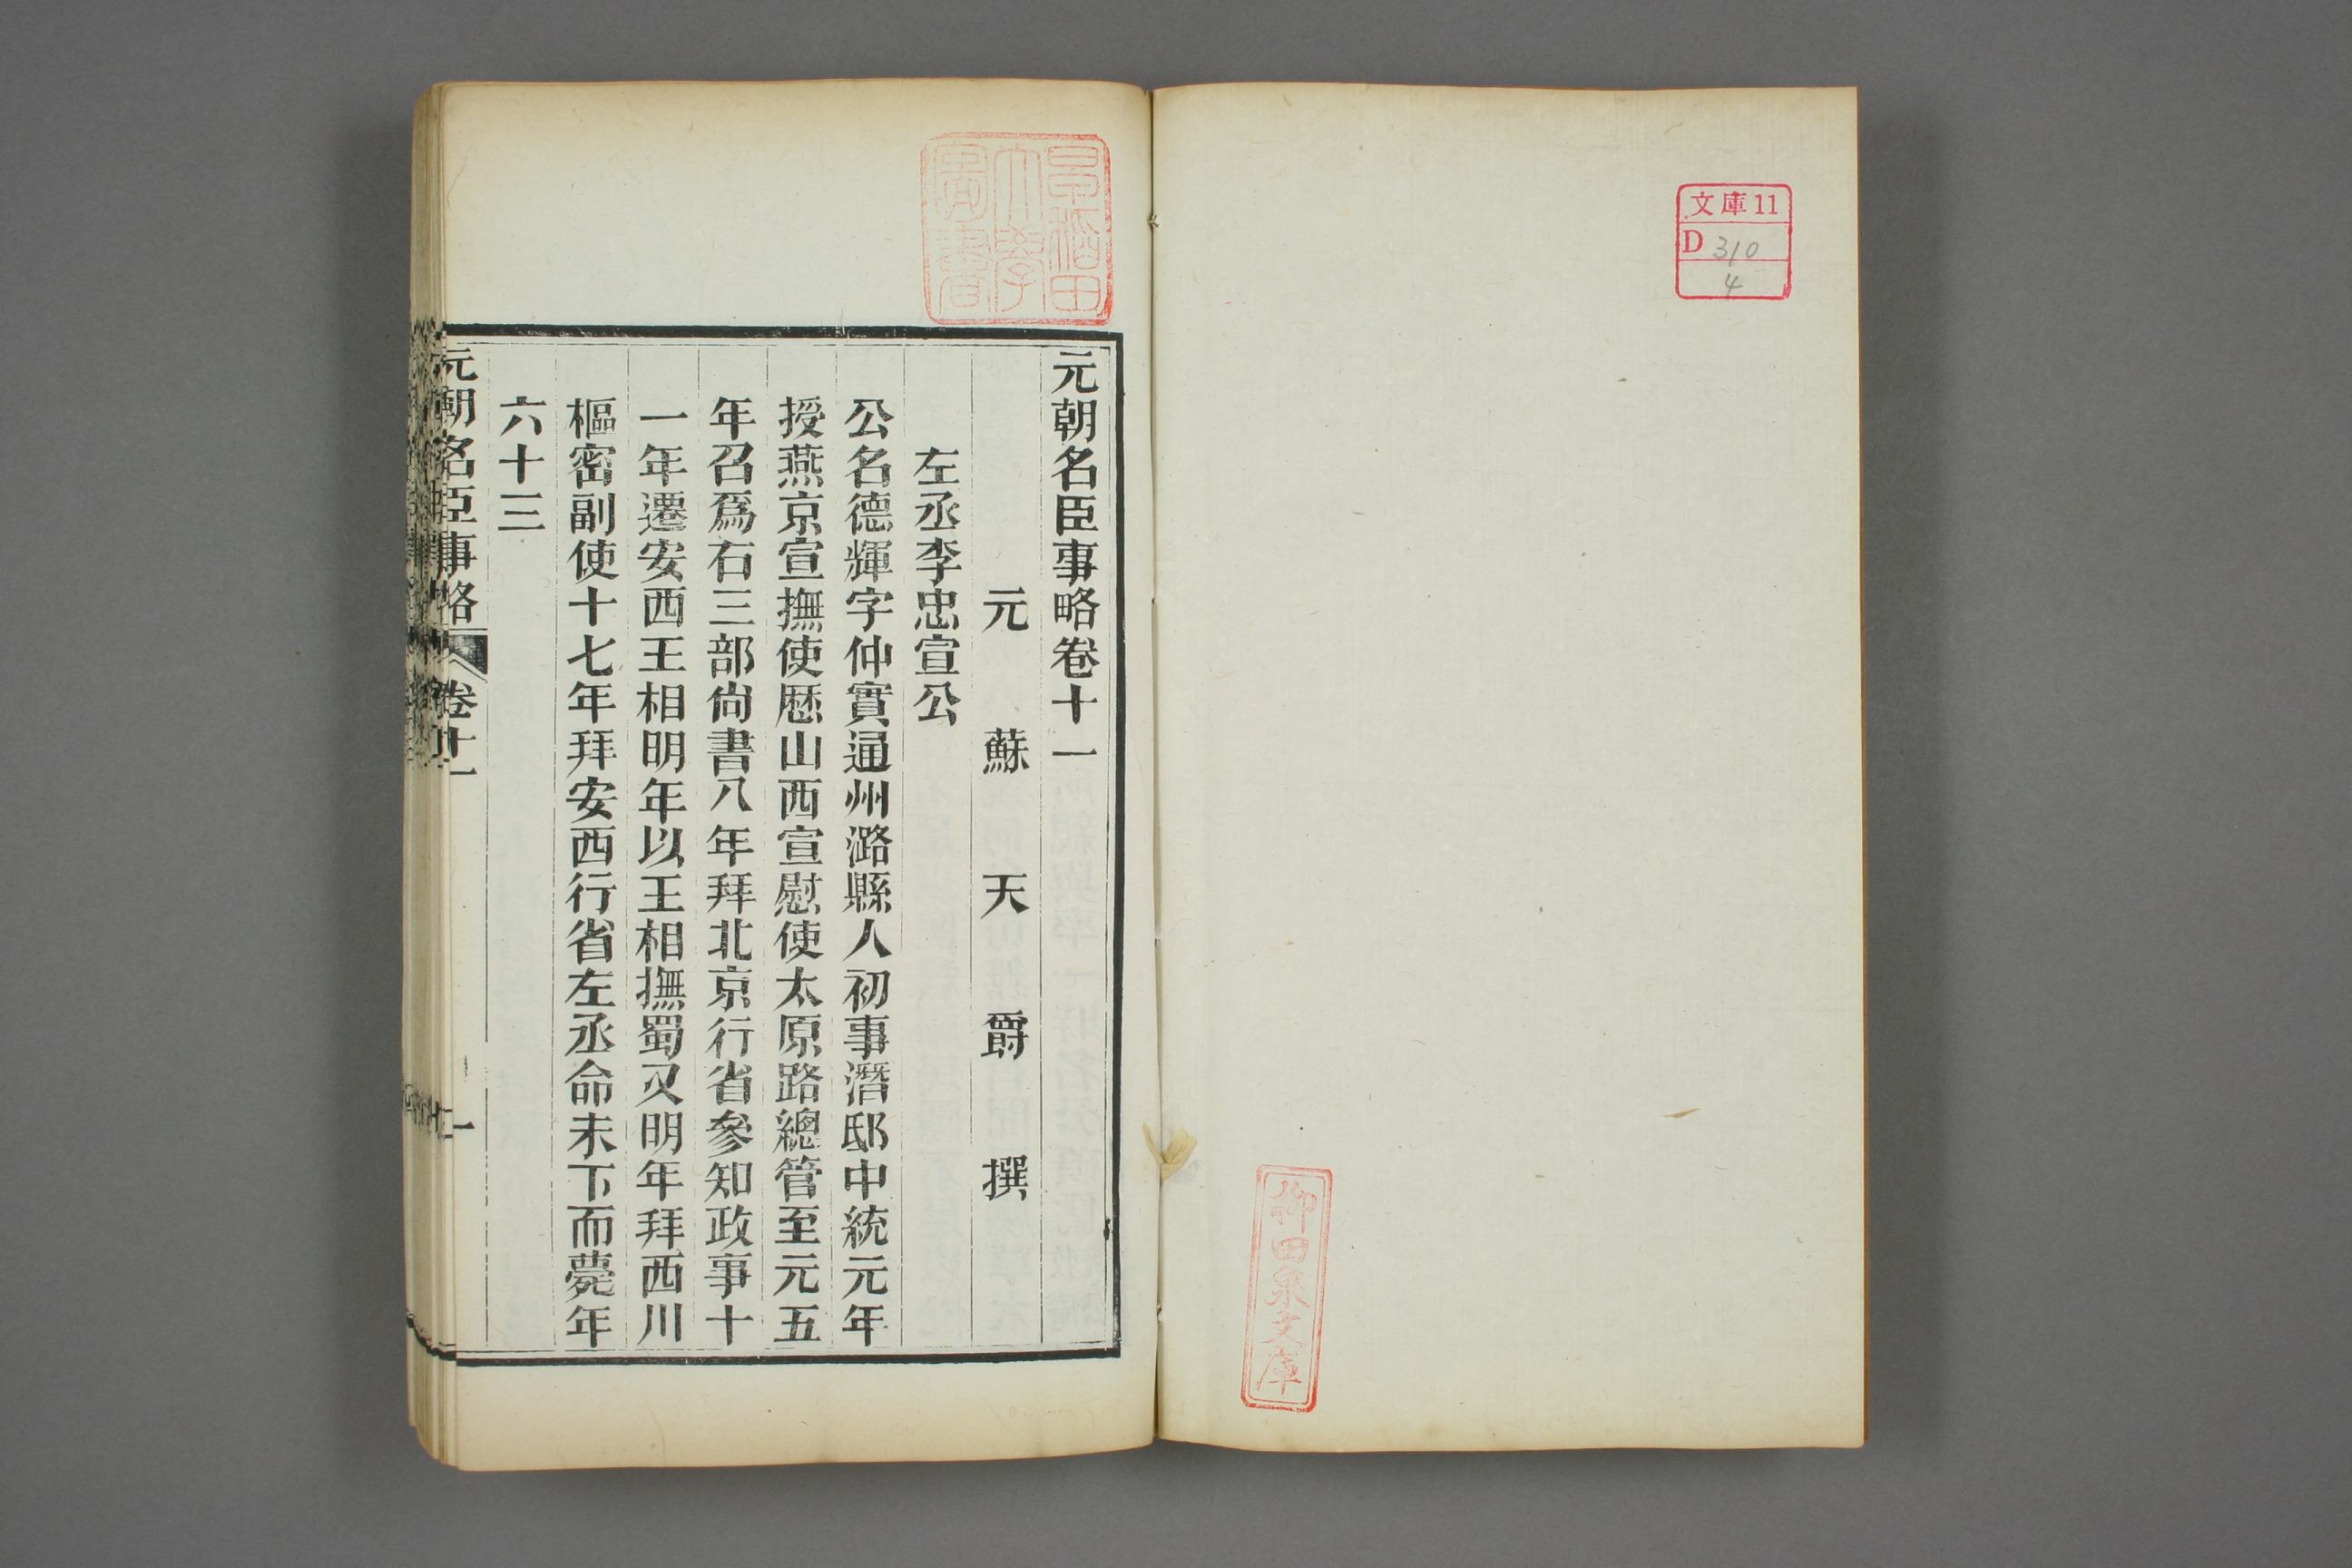 文庫11
D 310
4
柳田泉文庫
早稲田
大學
圖書
元朝名臣事略卷十一
元蘇天爵撰
左丞李忠宣公
公名德輝字仲實通州潞縣人初事潛邸中統元年
授燕京宣撫使歷山西宣慰使太原路總管至元五
年召爲右三部尙書八年拜北京行省參知政事十
一年遷安西王相明年以王相撫蜀又明年拜西川
樞密副使十七年拜安西行省左丞命未下而薨年
六十三
元朝名臣事略 卷十一 一